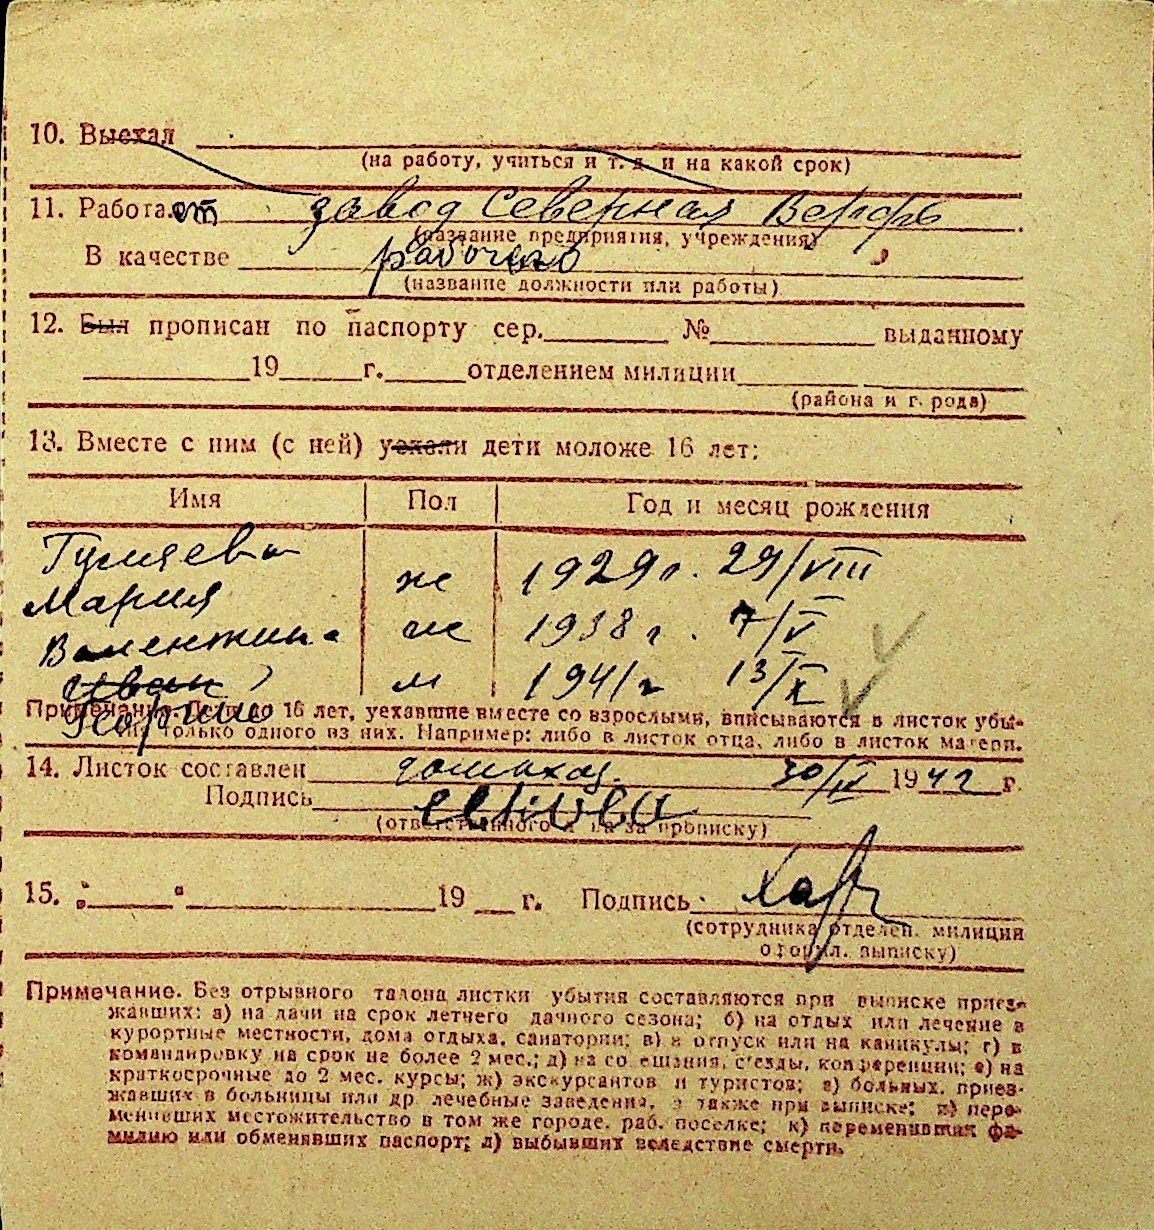 10. Выехал
(на работу, учиться и т. д. и на какой срок)
11. Работает завод Северная Верфь
(название предприятия, учреждения)
В качестве рабочего
(название должности или работы)
12. Был прописан по паспорту сер. № выданному
19 г. отделением милиции
(района и города)
13. Вместе с ним (с ней) уехали дети моложе 16 лет:
Имя Пол Год и месяц рождения
Гуляева
Мария ж 1929 г. 29/VIII
Валентина ж 1938 г. 7/V
Иван
Георгий м 1941 г 13/X
Примечание. Дети до 16 лет, уехавшие вместе со взрослыми, вписываются в листок убы-
тия только одного из них. Например: либо в листок отца, либо в листок матери.
14. Листок составлен 30/IV 1942 г.
Подпись
(ответственного за прописку)
15. " " 19 г. Подпись
(сотрудника отделен. милиции
оформил. выписку)
Примечание. Без отрывного талона листки убытия составляются при выписке приез-
жавших: а) на дачи на срок летнего дачного сезона; б) на отдых или лечение в
курортные местности, дома отдыха, санатории; в) в отпуск или на каникулы; г) в
командировку на срок не более 2 мес.; д) на совещания, с'езды, конференции; е) на
краткосрочные до 2 мес. курсы; ж) экскурсантов и туристов; з) больных, приез-
жавших в больницы или др. лечебные заведения, а также при выписке; и) пере-
менивших местожительство в том же городе, раб. поселке; к) переменивших фа-
милию или обменявших паспорт; л) выбывших вследствие смерти.